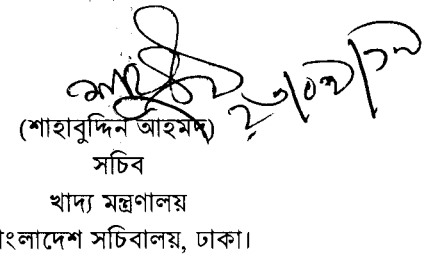 (শাহাবুদ্দিন আহমদ)
সচিব
খাদ্য মন্ত্রণালয়
বাংলাদেশ সচিবালয়, ঢাকা।